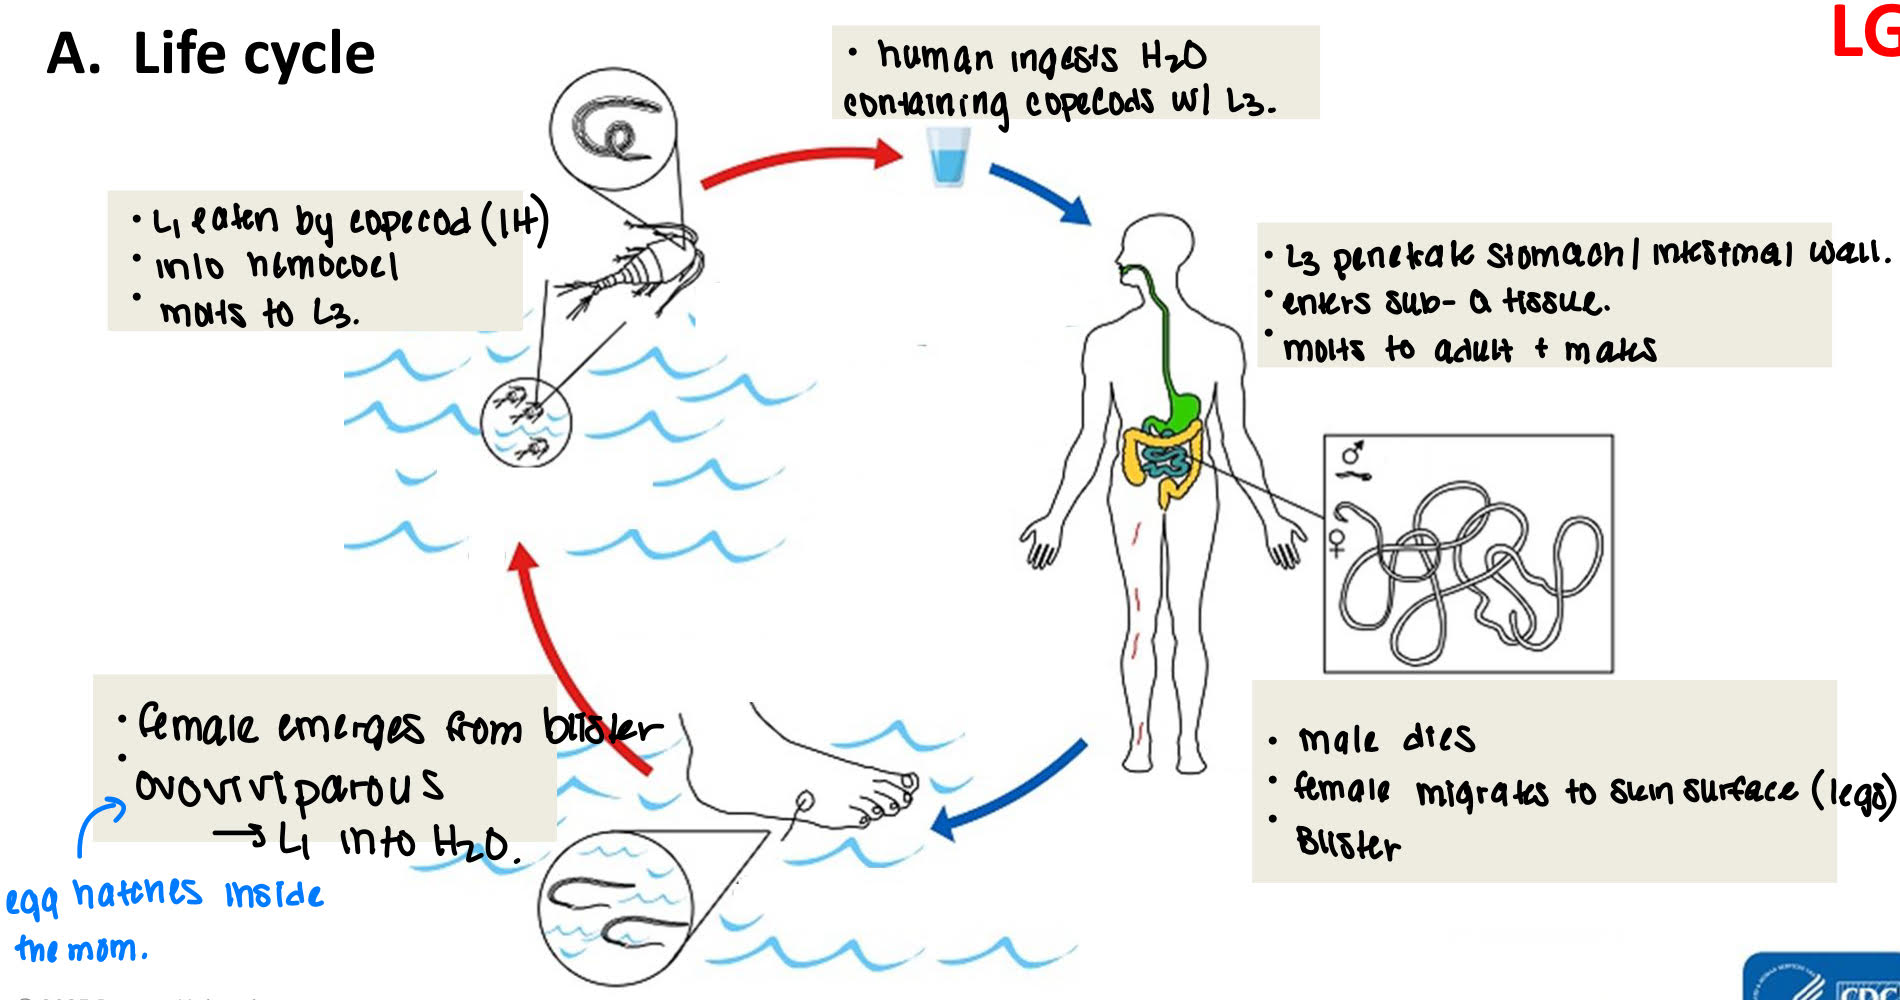 A. Life cycle
LG
• human ingests H₂O
containing copecods w/ L3.
• L₁ eaten by copecod (IH)
• into hemocoel
• molts to L3.
• L3 penetrate stomach / intestinal wall.
• enters sub-Q tissue.
• molts to adult + mates
♂
♀
• male dies
• female migrates to skin surface (legs)
• Blister
• female emerges from blister
• ovoviviparous
→ L₁ into H₂O.
egg hatches inside
the mom.
CDC